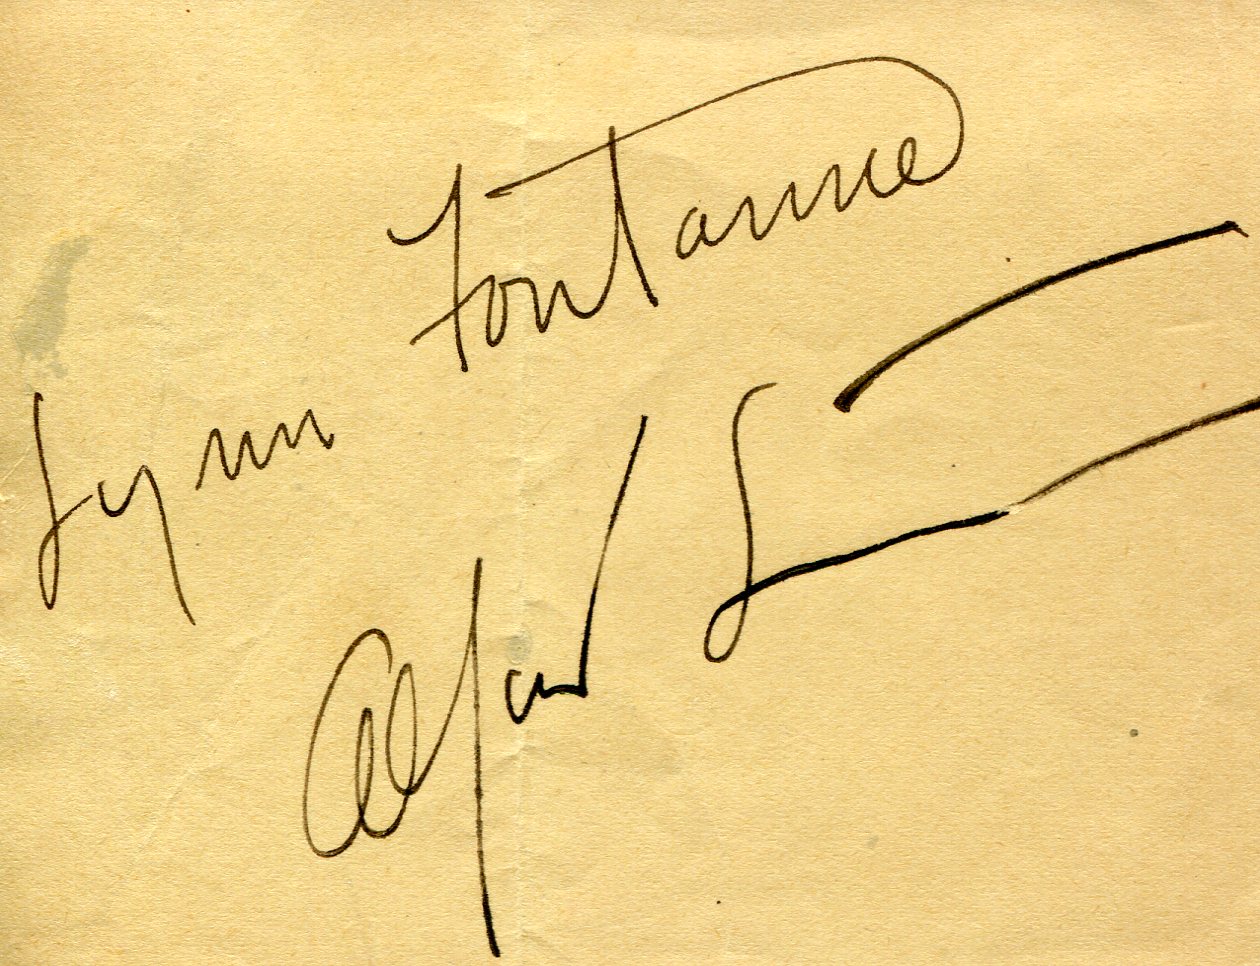 Lynn Fontanne
Alfred L